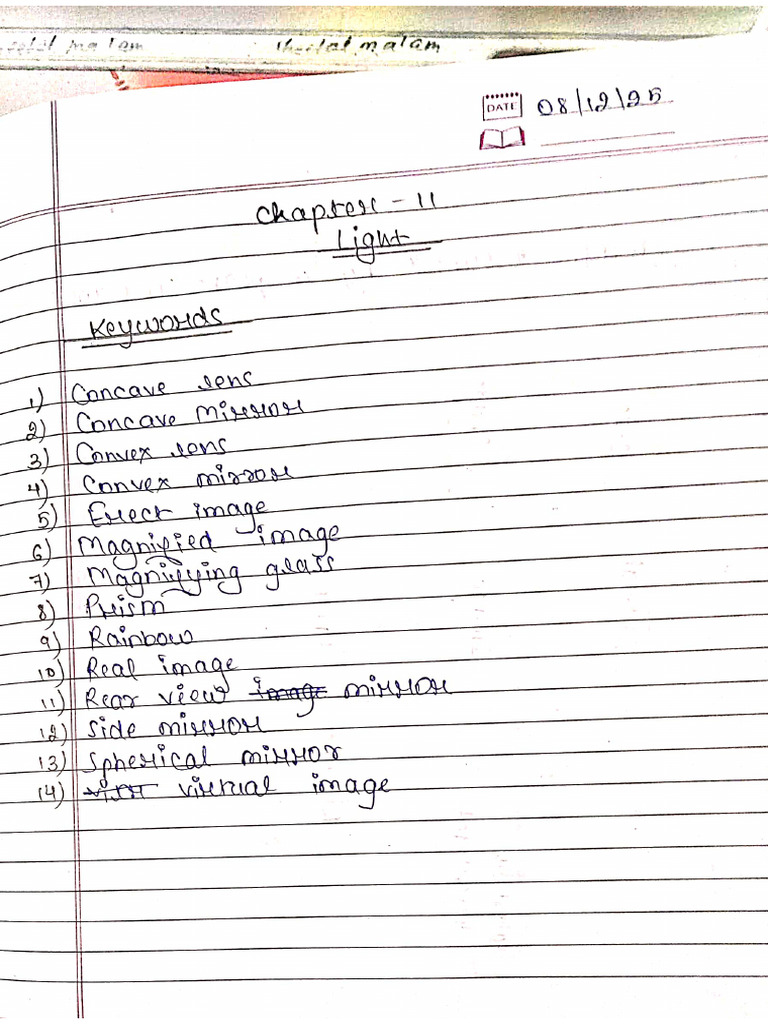 malam malam
DATE 08/12/25
Chapter - 11
Light
Keywords
1) Concave lens
2) Concave mirror
3) Convex lens
4) Convex mirror
5) Erect image
6) Magnified image
7) Magnifying glass
8) Prism
9) Rainbow
10) Real image
11) Rear view image mirror
12) Side mirror
13) Spherical mirror
14) virtual image